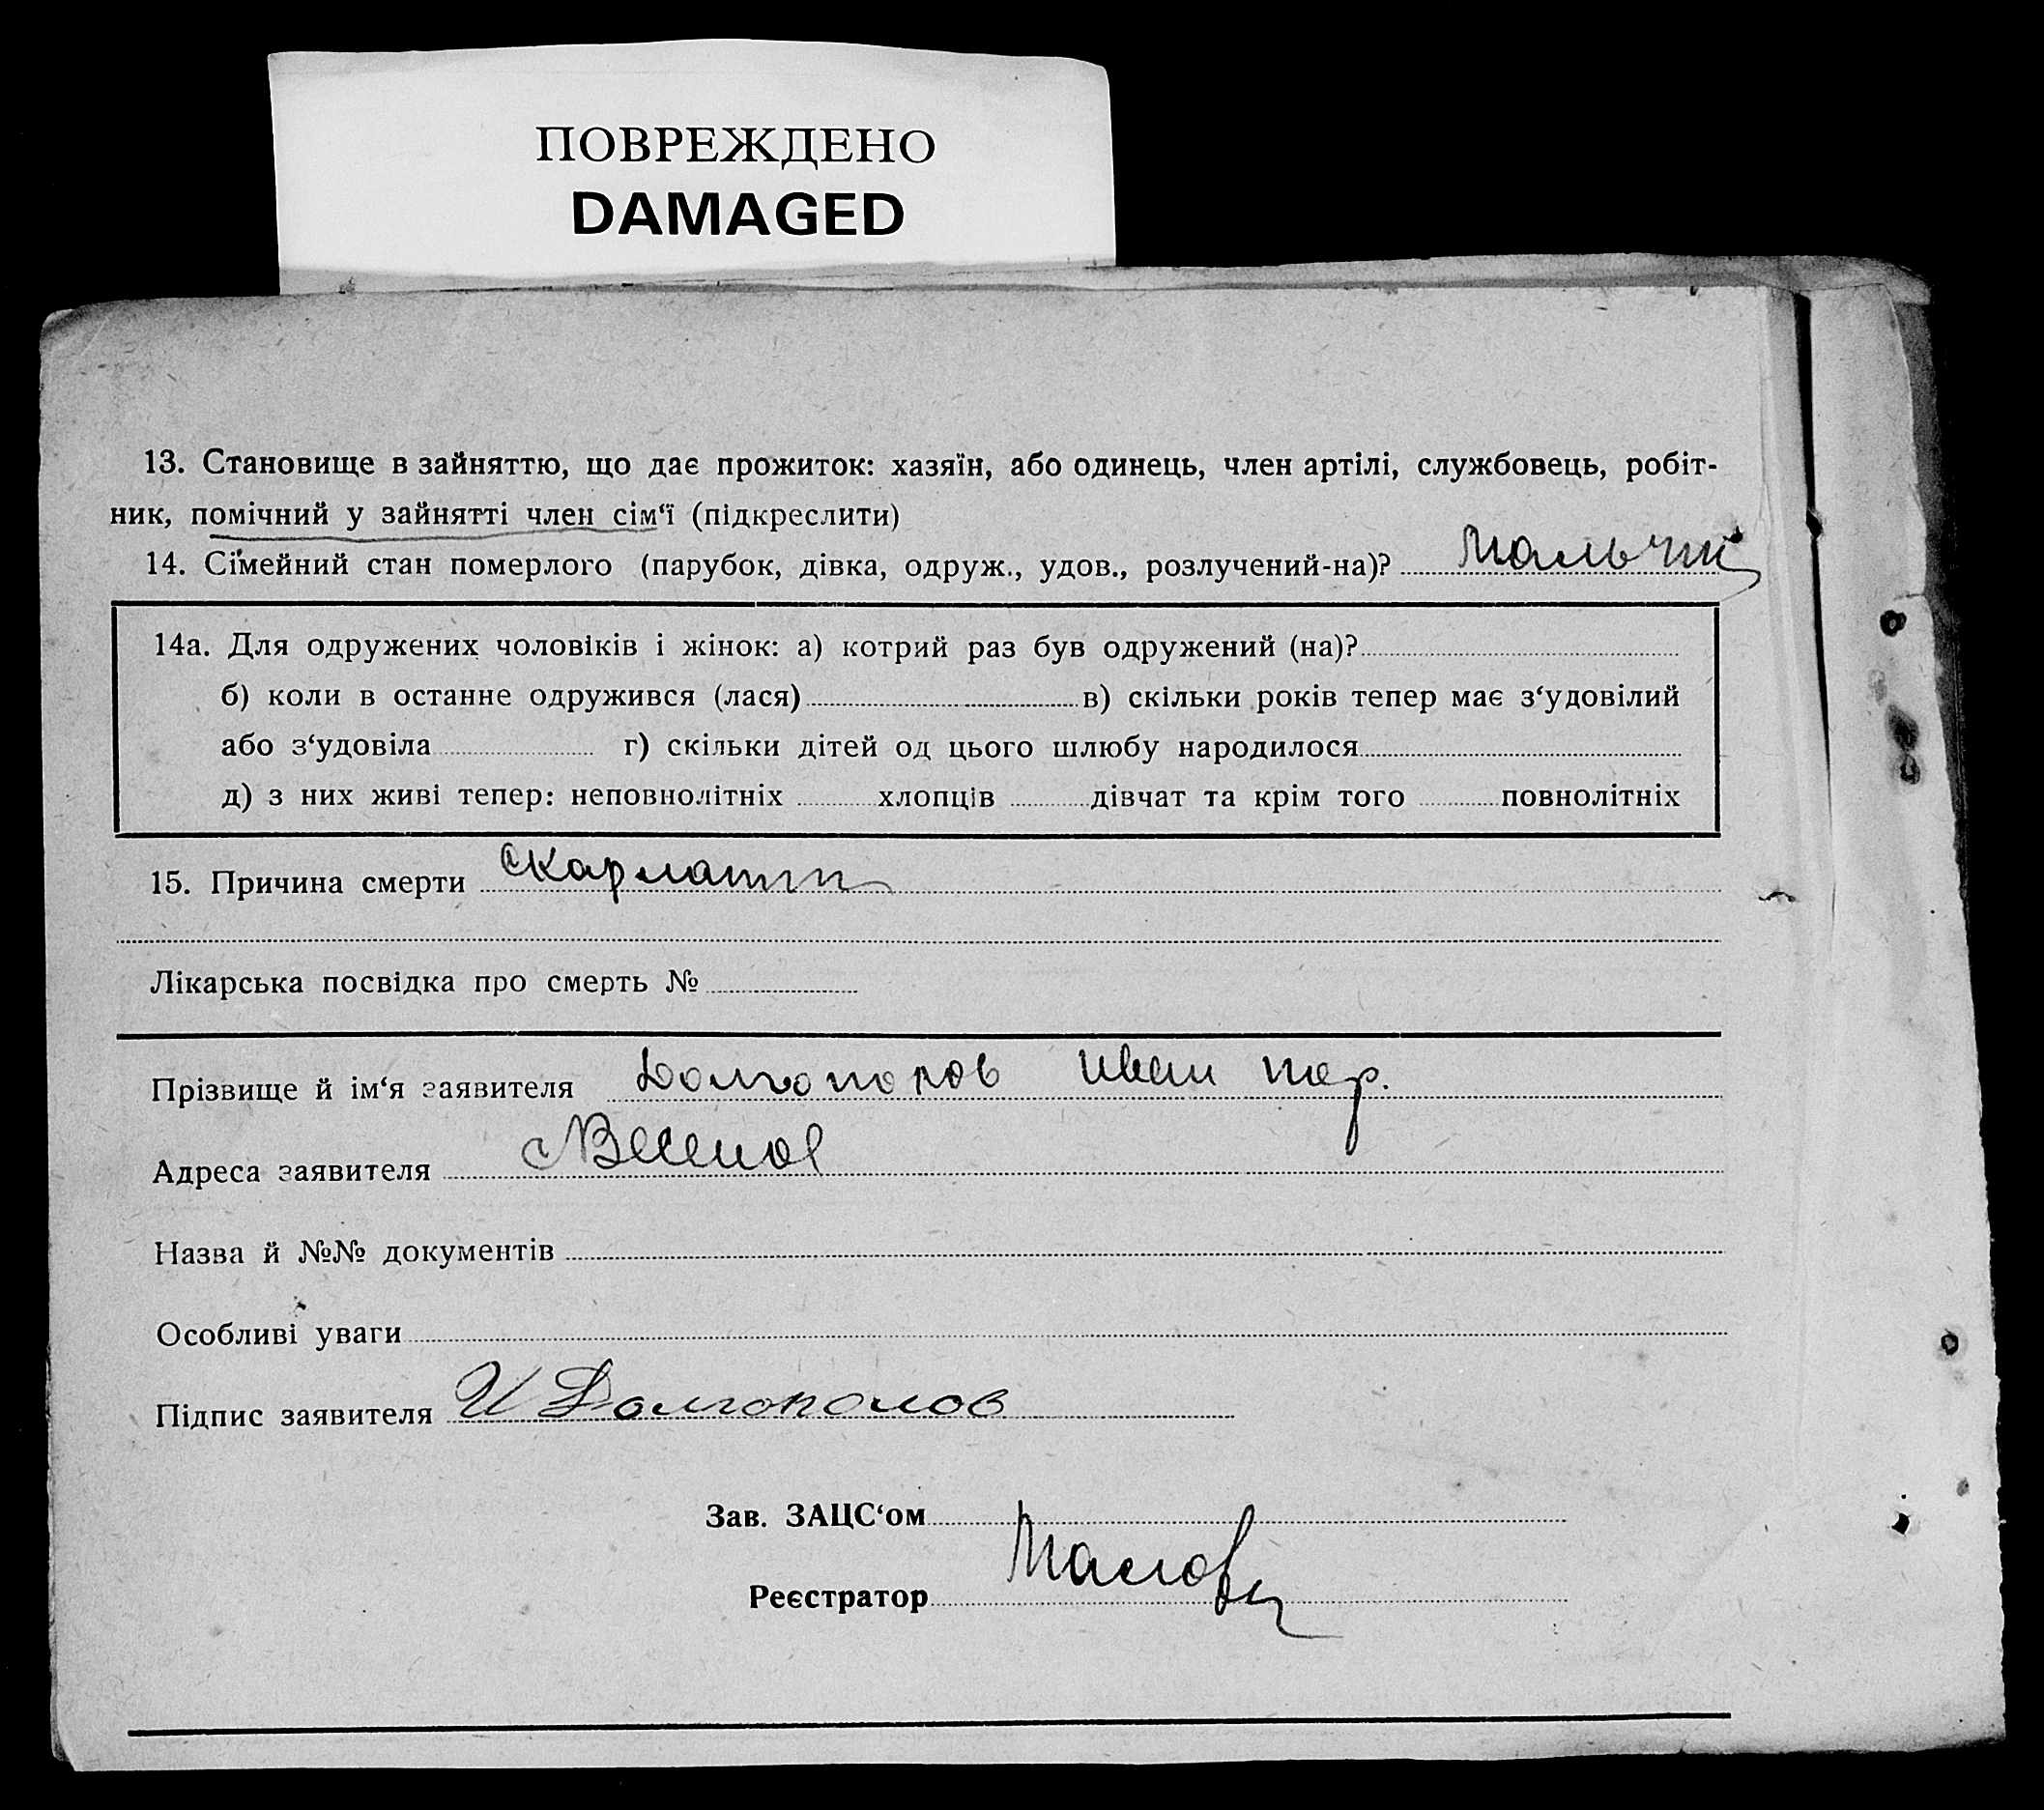 ПОВРЕЖДЕНО
DAMAGED
13. Становище в зайняттю, що дає прожиток: хазяїн, або одинець, член артілі, службовець, робіт-
ник, помічний у зайнятті член сім‘ї (підкреслити)
14. Сімейний стан померлого (парубок, дівка, одруж., удов., розлучений-на)?
14а. Для одружених чоловіків і жінок: а) котрий раз був одружений (на)?
б) коли в останне одружився (лася) в) скільки років тепер має з‘удовілий
або з‘удовіла г) скільки дітей од цього шлюбу народилося
д) з них живі тепер: неповнолітніх хлопців дівчат та крім того повнолітніх
15. Причина смерти Скарлатин
Лікарська посвідка про смерть №
Прізвище й ім‘я заявителя Иван
Адреса заявителя
Назва й №№ документів
Особливі уваги
Підпис заявителя И Долгополов
Зав. ЗАЦС‘ом
Реєстратор